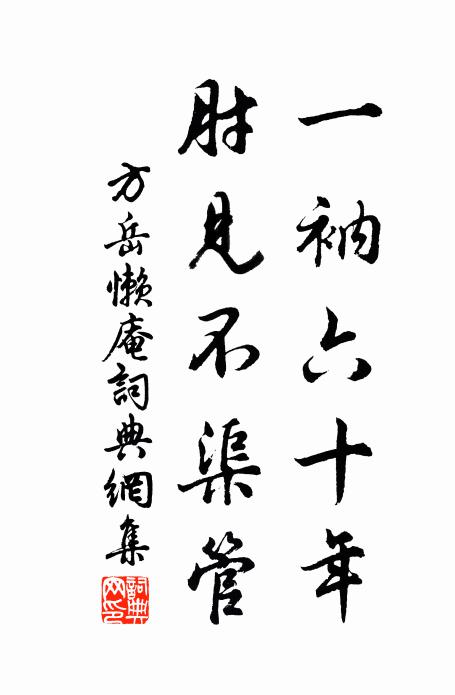 一衲六十年
肘見不渠管
方岳懶庵詞典網集
詞典網印